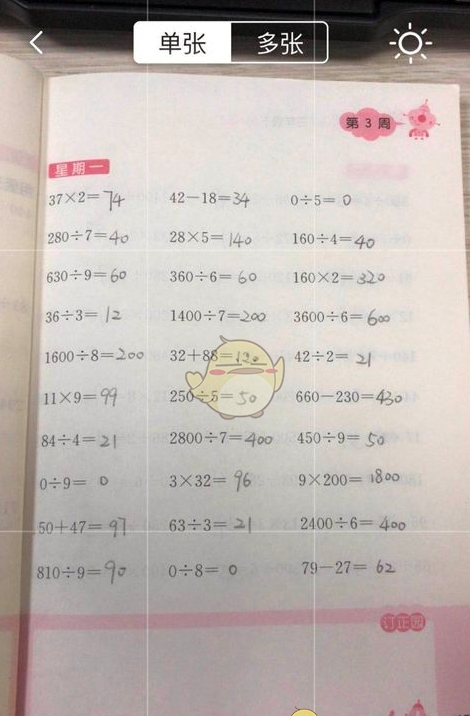 单张 多张
第 3 周
星期一
37×2=74 42-18=34 0÷5=0
280÷7=40 28×5=140 160÷4=40
630÷9=60 360÷6=60 160×2=320
36÷3=12 1400÷7=200 3600÷6=600
1600÷8=200 32+88=120 42÷2=21
11×9=99 250÷5=50 660-230=430
84÷4=21 2800÷7=400 450÷9=50
0÷9=0 3×32=96 9×200=1800
50+47=97 63÷3=21 2400÷6=400
810÷9=90 0÷8=0 79-27=62
订正园